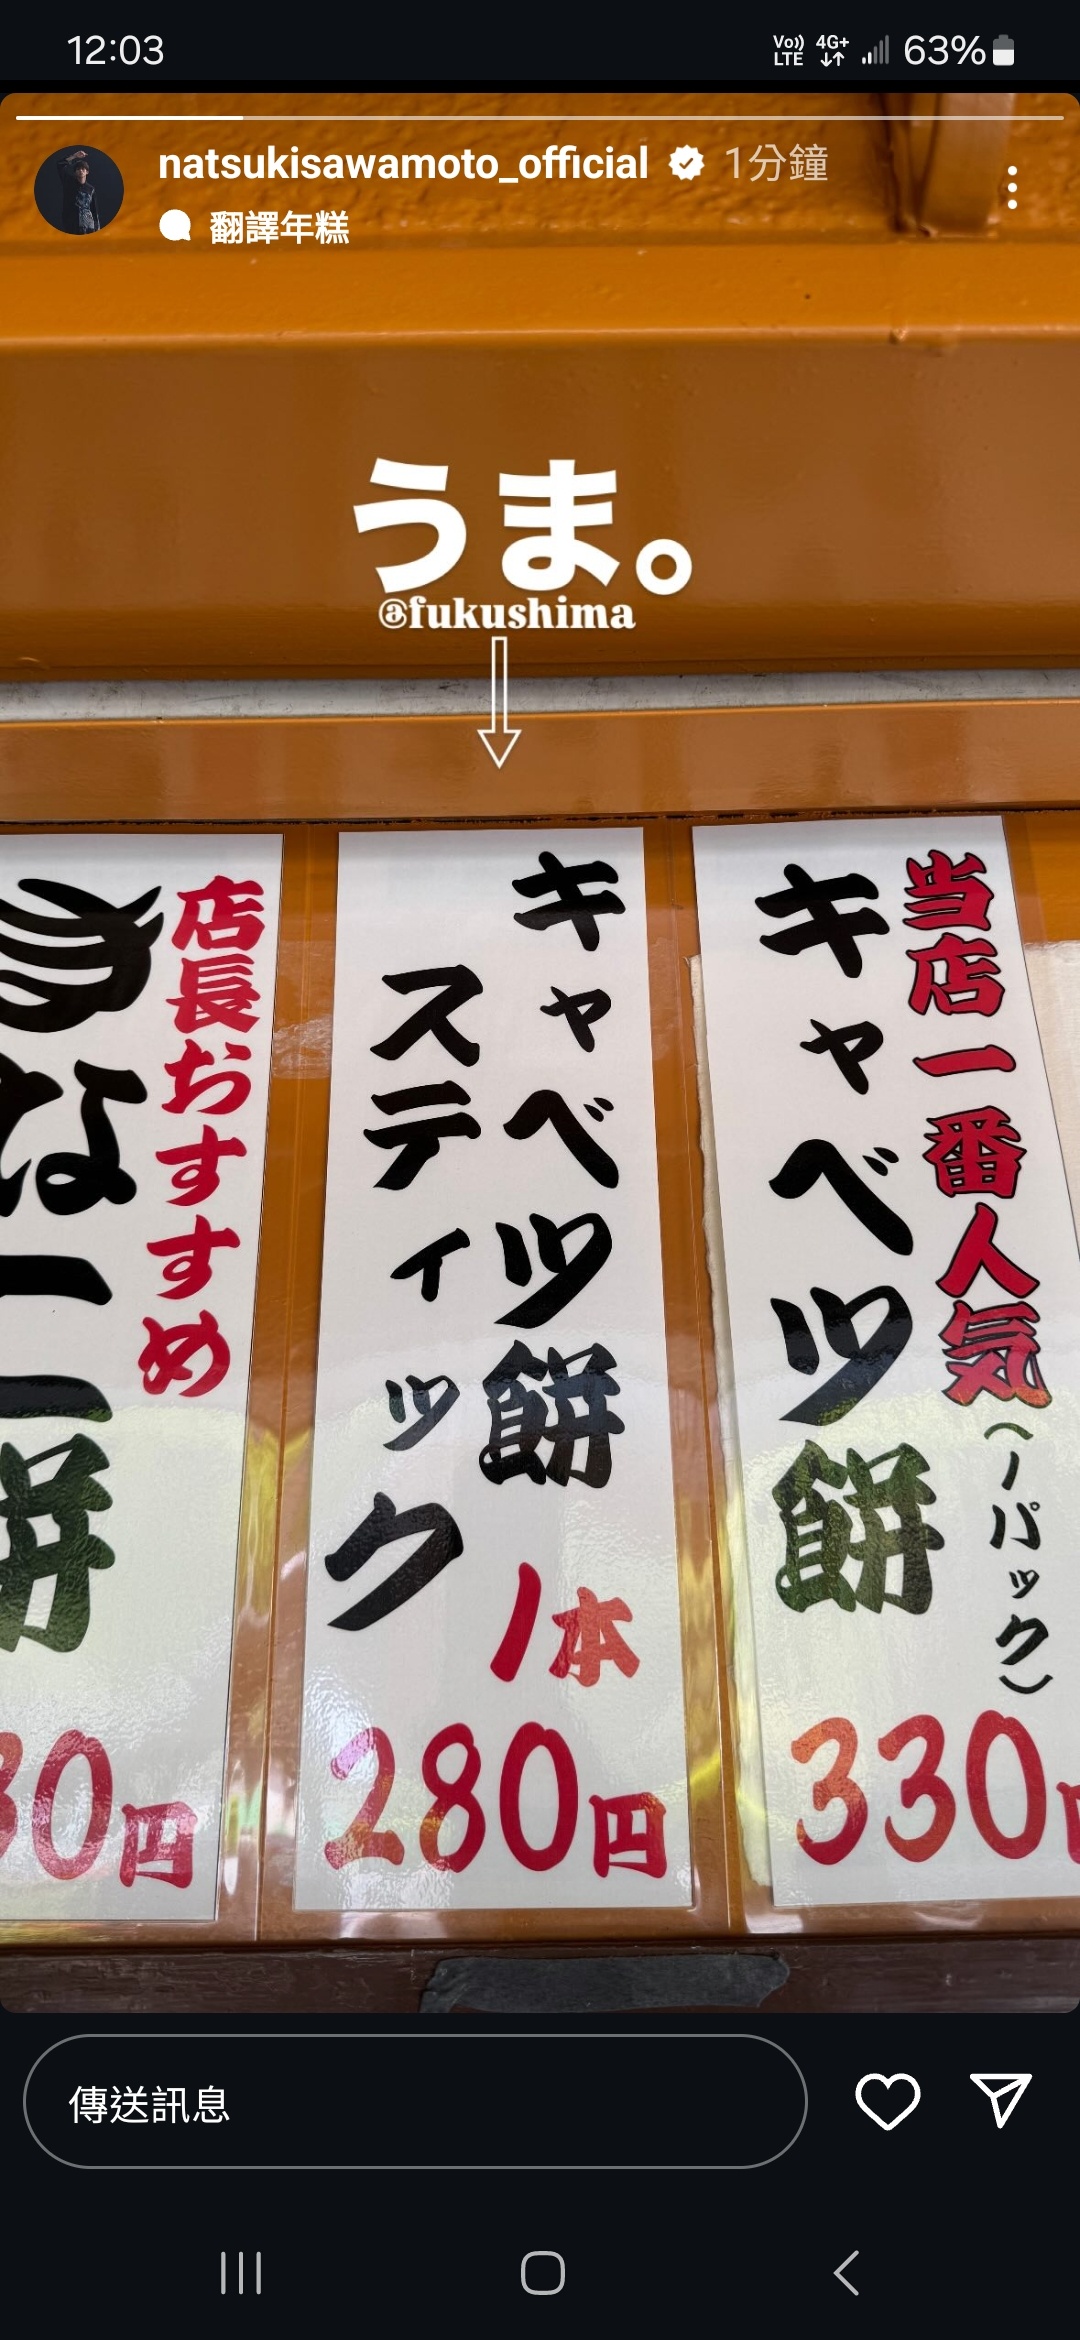 12:03
Vo)) LTE 4G+ 63%
natsukisawamoto_official 1分鐘
翻譯年糕
うま。
@fukushima
当店一番人気(1パック)
キャベツ餅
330円
キャベツ餅
スティック
1本
280円
店長おすすめ
餅
30円
傳送訊息